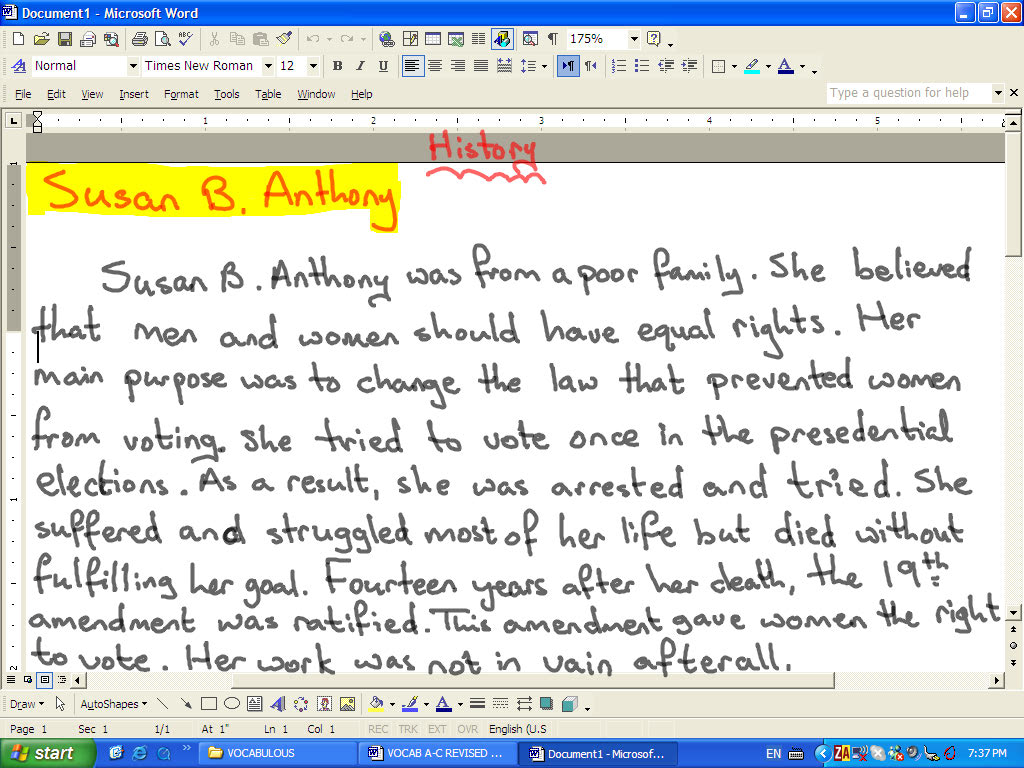 Document1 - Microsoft Word
175%
Normal Times New Roman 12 B I U
File Edit View Insert Format Tools Table Window Help Type a question for help
1 2 3 4 5
History
Susan B. Anthony
Susan B. Anthony was from a poor family. She believed
that men and women should have equal rights. Her
main purpose was to change the law that prevented women
from voting. She tried to vote once in the presedential
elections. As a result, she was arrested and tried. She
suffered and struggled most of her life but died without
fulfilling her goal. Fourteen years after her death, the 19th
amendment was ratified. This amendment gave women the right
to vote. Her work was not in vain afterall.
Draw AutoShapes
Page 1 Sec 1 1/1 At 1" Ln 1 Col 1 REC TRK EXT OVR English (U.S
start VOCABULOUS VOCAB A-C REVISED ... Document1 - Microsof... EN ZA 7:37 PM